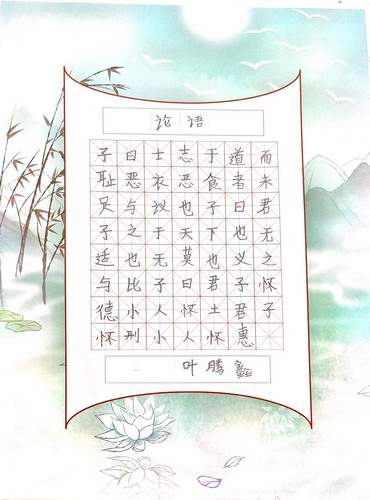 论语
子曰士志于道而
耻恶衣恶食者未
足与议也子曰君
子之于天下也无
适也无莫也义之
与比子曰君子怀
德小人怀土君子
怀刑小人怀惠
叶腾鑫